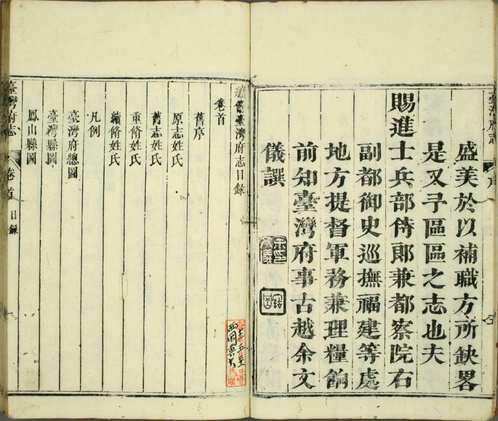 盛美於以補職方所缺畧
是又予區區之志也夫
賜進士兵部侍郎兼都察院右
副都御史巡撫福建等處
地方提督軍務兼理糧餉
前知臺灣府事古越余文
儀譔
臺灣府志目錄
卷首
舊序
原志姓氏
舊志姓氏
重脩姓氏
續脩姓氏
凡例
臺灣府總圖
臺灣縣圖
鳳山縣圖
臺灣府志
卷首
目錄